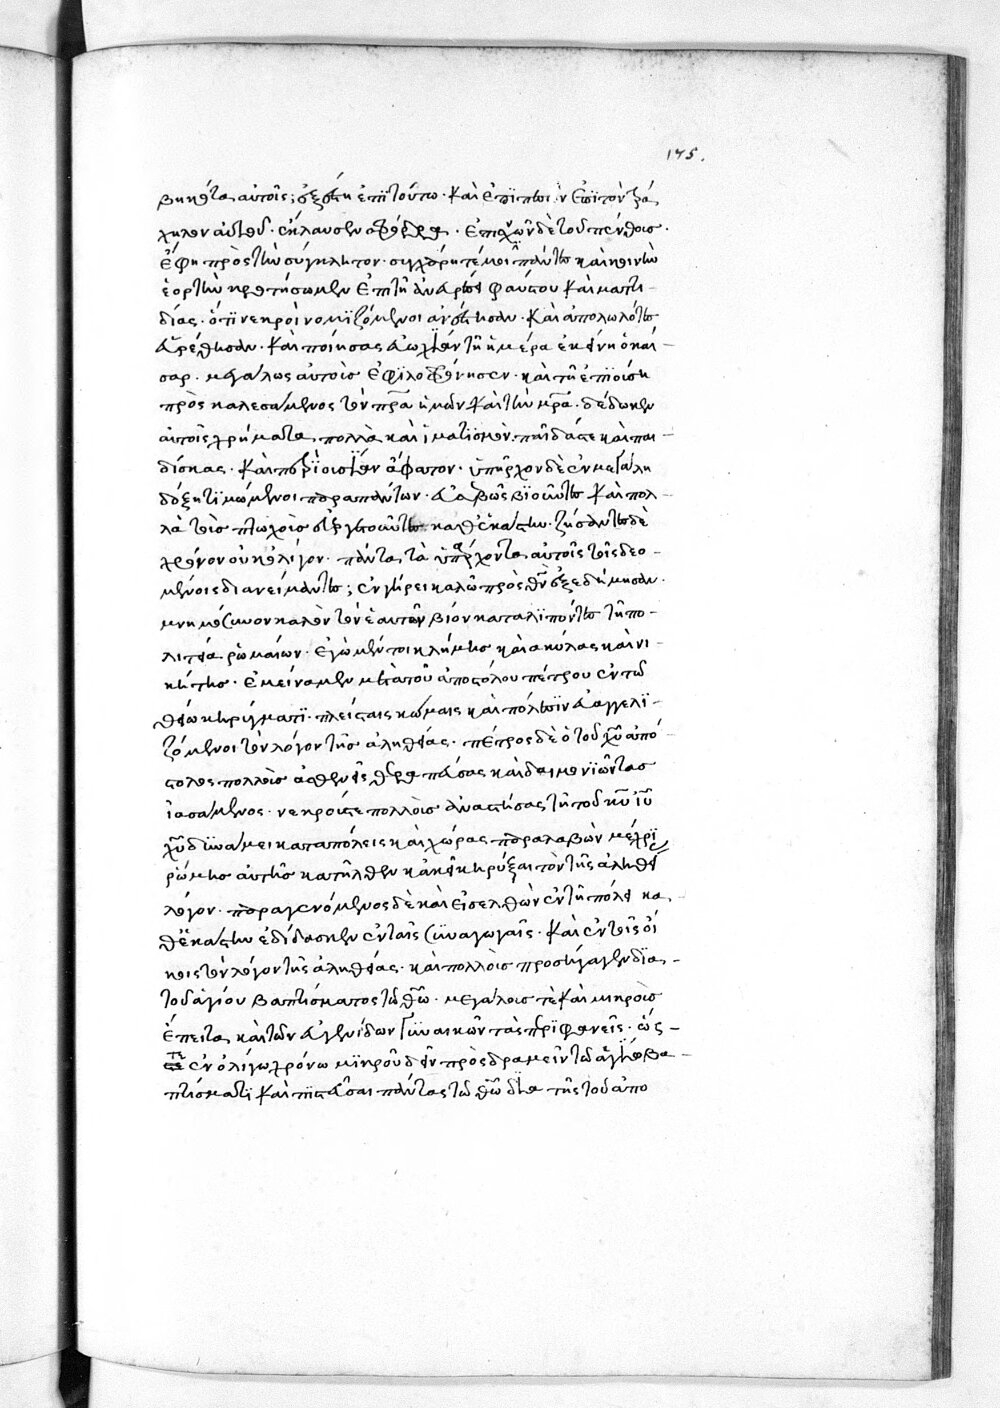 175.
βηκότα αὐτοῖς; ἐξέστη ἐπὶ τούτω· καὶ ἐπιπεσὼν ἐπὶ τὸν τρά
χηλον αὐτοῦ· ἔκλαυσεν σφόδρα· ἐπισχὼν δὲ τοῦ πένθους·
ἔφη πρὸς τὴν σύγκλητον· συγχάρητέ μοι πάντες καὶ κοινὴν
ἑορτὴν κροτήσωμεν ἐπὶ τῆ εὑρέσει φαύστου καὶ ματθι-
δίας· ὅτι νεκροὶ νομιζόμενοι ἀνέστησαν· καὶ ἀπολωλότες
εὑρέθησαν· καὶ ποιήσας εὐωχίαν τῆ ἡμέρα ἐκείνη ὁ καί-
σαρ· μεγάλως αὐτοὺς ἐφιλοφρόνησεν· καὶ τῆ ἐπιούση
προσκαλεσάμενος τὸν πρα ἡμῶν καὶ τὴν μρα· δέδωκεν
αὐτοῖς χρήματα πολλὰ καὶ ἱματισμὸν παῖδάς τε καὶ παι-
δίσκας· καὶ περιουσίαν ἄφατον· ὑπῆρχον δὲ ἐν μεγάλη
δόξη τιμώμενοι παρὰ πάντων· εὐσεβῶς βιοῦντες καὶ πολ-
λὰ τοῖς πτωχοῖς εὐεργετοῦντες καθεκάστην· ζήσαντες δὲ
χρόνον οὐκ ὀλίγον· πάντα τὰ ὑπάρχοντα αὐτοῖς τοῖς δεο-
μένοις διανείμαντες; ἐν γήρει καλῶ πρὸς θν ἐξεδήμησαν·
μνημόσυνον καλὸν τὸν ἑαυτῶν βίον καταλιπόντες τῆ πο-
λιτεία ῥωμαίων· ἐγὼ μέν τοι κλήμης καὶ ἀκύλας καὶ νι-
κήτης· ἐμείναμεν μετὰ τοῦ ἀποστόλου πέτρου ἐν τῶ
θείω κηρύγματι· πλείσταις κώμαις καὶ πόλεσιν εὐαγγελι-
ζόμενοι τὸν λόγον τῆς ἀληθείας· πέτρος δὲ ὁ τοῦ χυ ἀπό-
στολος πολλοὺς ἀσθενεῖς θεραπεύσας καὶ δαιμονιῶντας
ἰασάμενος· νεκρούς τε πολλοὺς ἀναστήσας τῆ τοῦ κυ ιυ
χυ δυνάμει κατὰ πόλεις καὶ χώρας παραλαβὼν μέχρι
ῥώμης αὐτῆς κατῆλθεν κἀκεῖ κηρύξαι τὸν τῆς ἀληθεί
λόγον· παραγενόμενος δὲ καὶ εἰσελθὼν ἐν τῆ πόλει κα-
θεκάστην ἐδίδασκεν ἐν ταῖς συναγωγαῖς· καὶ ἐν τοῖς οἴ
κοις τὸν λόγον τῆς ἀληθείας· καὶ πολλοὺς προσήγαγεν διὰ-
τοῦ ἁγίου βαπτίσματος τῶ θω· μεγάλους τὲ καὶ μικροὺς
ἔπειτα καὶ τῶν εὐγενίδων γυναικῶν τὰς περιφανεῖς· ὥς-
τε ἐν ὀλίγω χρόνω μικροῦ δεῖν προσδραμεῖν τῶ ἁγίω βα-
πτίσματι καὶ πιστεῦσαι πάντας τῶ θω διὰ τῆς τοῦ ἀπο